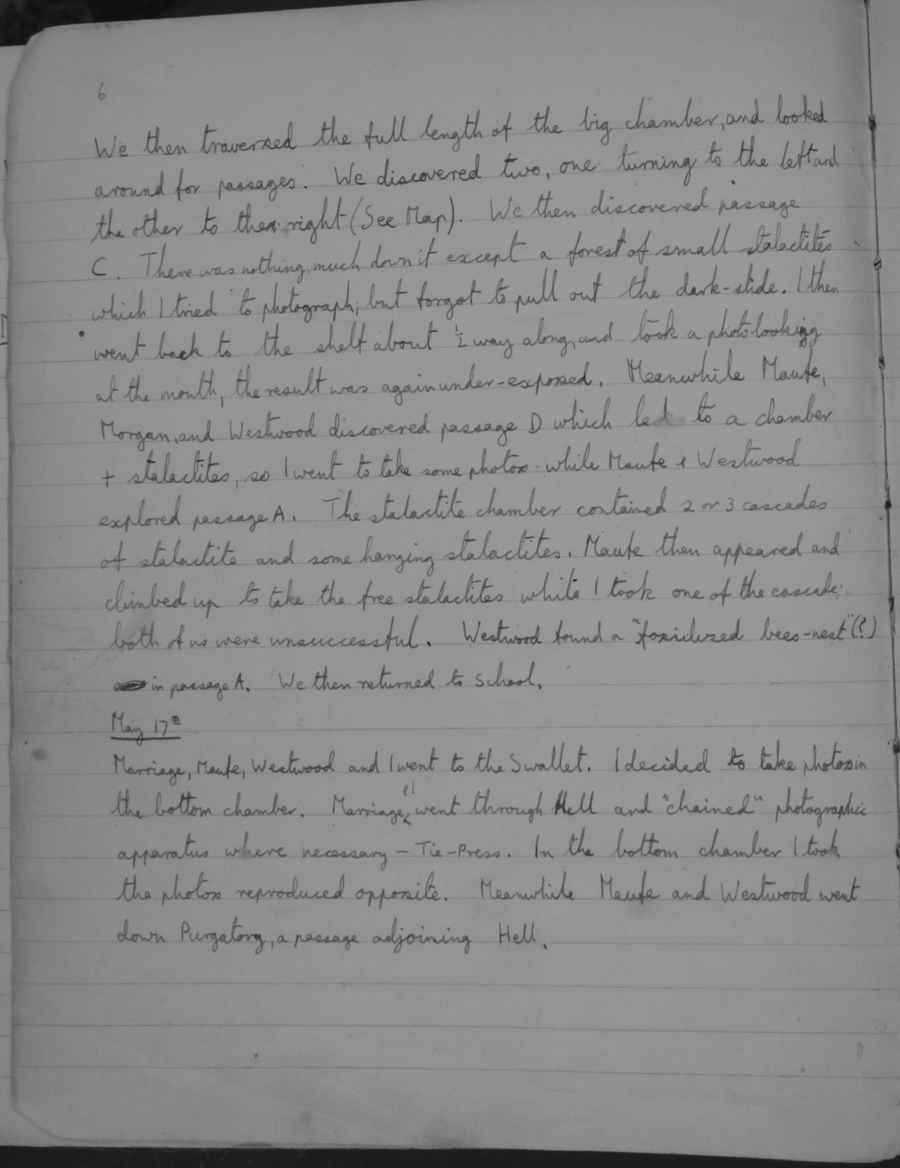 6
We then traversed the full length of the big chamber, and looked
around for passages. We discovered two, one turning to the left and
the other to the right (See Map). We then discovered passage
C. There was nothing much down it except a forest of small stalactites
which I tried to photograph, but forgot to pull out the dark-slide. I then
went back to the shelf about ½ way along, and took a photo looking
at the mouth, the result was again under-exposed. Meanwhile Maufe,
Morgan, and Westwood discovered passage D which led to a chamber
+ stalactites, so I went to take some photos while Maufe & Westwood
explored passage A. The stalactite chamber contained 2 or 3 cascades
of stalactite and some hanging stalactites. Maufe then appeared and
climbed up to take the free stalactites while I took one of the cascade:
both of us were unsuccessful. Westwood found a "fossilized bees-nest" (?)
in passage A. We then returned to School.
May 17th
Marriage, Maufe, Westwood and I went to the Swallet. I decided to take photos in
the bottom chamber. Marriage went through Hell and "chained" photographic
apparatus where necessary – Tie-Press. In the bottom chamber I took
the photos reproduced opposite. Meanwhile Maufe and Westwood went
down Purgatory, a passage adjoining Hell.